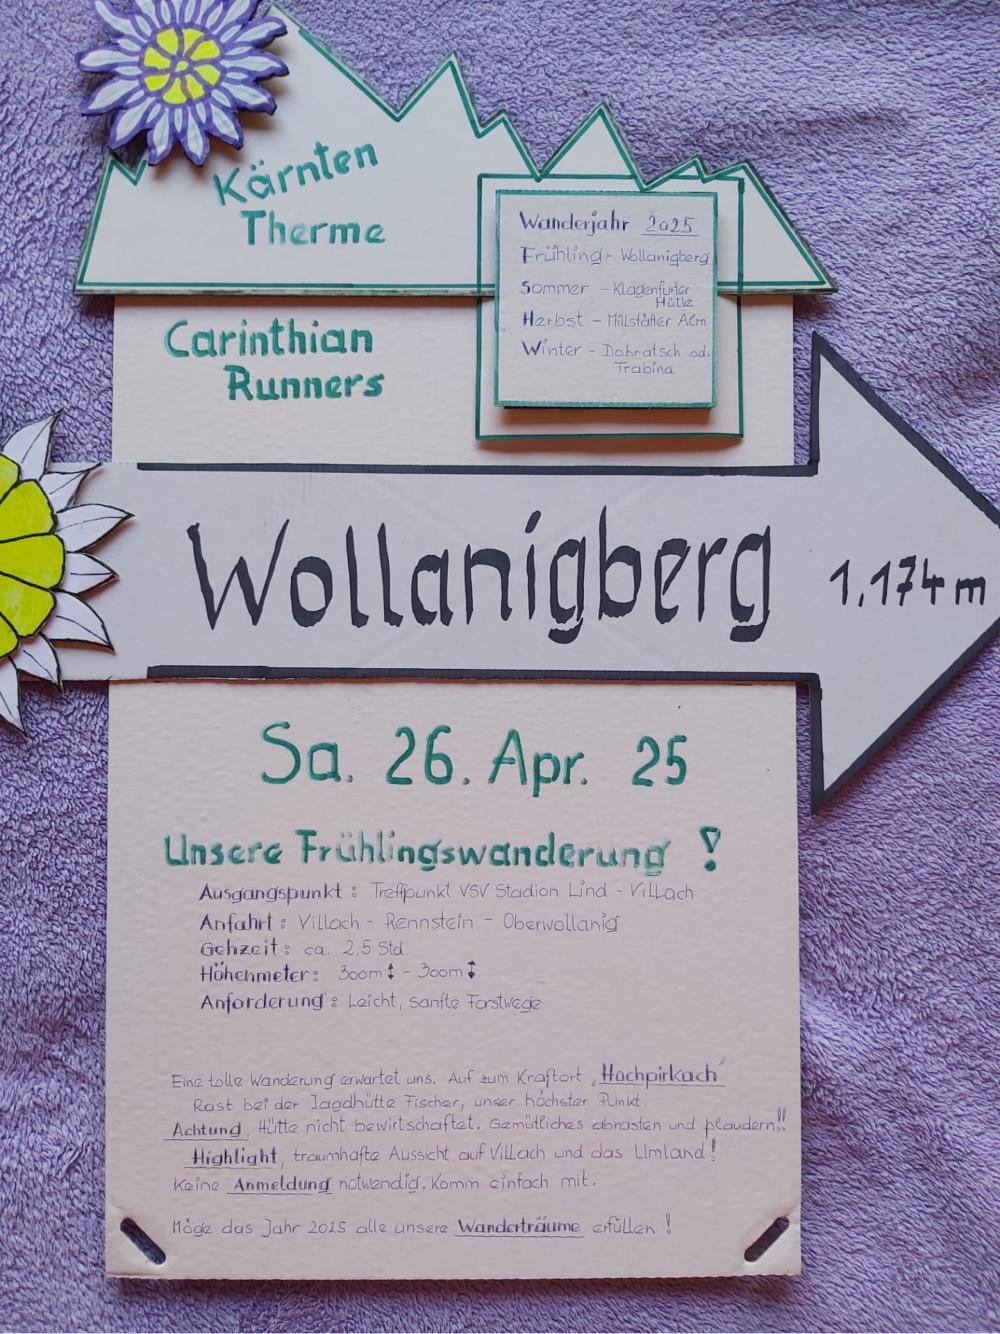 Kärnten
Therme
Wanderjahr 2025
Frühling - Wollanigberg
Sommer - Klagenfurter
Hütte
Herbst - Millstätter Alm
Winter - Dobratsch od.
Trabina
Carinthian
Runners
Wollanigberg
1.174 m
Sa. 26. Apr. 25
Unsere Frühlingswanderung!
Ausgangspunkt: Treffpunkt VSV Stadion Lind - Villach
Anfahrt: Villach - Rennstein - Oberwollanig
Gehzeit: ca. 2,5 Std.
Höhenmeter: 300m↕ - 300m↕
Anforderung: Leicht, sanfte Forstwege
Eine tolle Wanderung erwartet uns. Auf zum Kraftort „Hochpirkach"
Rast bei der Jagdhütte Fischer, unser höchster Punkt.
Achtung, Hütte nicht bewirtschaftet. Gemütliches abrasten und plaudern!!
Highlight, traumhafte Aussicht auf Villach und das Umland!
Keine Anmeldung notwendig. Komm einfach mit.
Möge das Jahr 2025 alle unsere Wanderträume erfüllen!